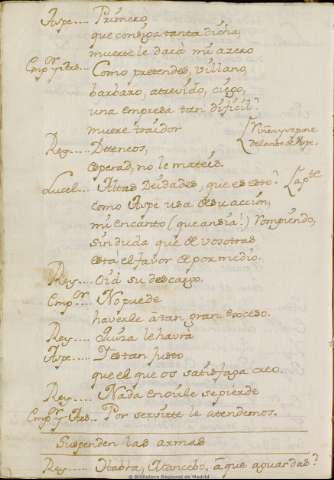 Aspe.... Primero,
que consiga tanta dicha,
muerte le dará mi azero
Emp.r y Res... Como pretendes, villano,
barbaro, atrevido, ciego,
una empresa tan dificil?
muere traidor
Rey.... Deteneos,
esperad, no le mateis.
Lucel... Altas Deidades, que es esto?
como Aspe usa de su acción,
mi encanto (que ansia!) rompiendo,
sin duda que de vosotras
está el favor de por medio.
Rey.... Oid su descargo.
Emp.r No puede
haverle á tan gran exceso.
Rey.... Quiza le havrá
Aspe.... Y es tan justo
que el que os satisfaga creo.
Rey.... Nada en oirle se pierde
Emp.r y Res... Por servirte le atendemos.
Suspenden las armas
Rey.... Habra, mancebo, á que aguardas?
Biblioteca Regional de Madrid